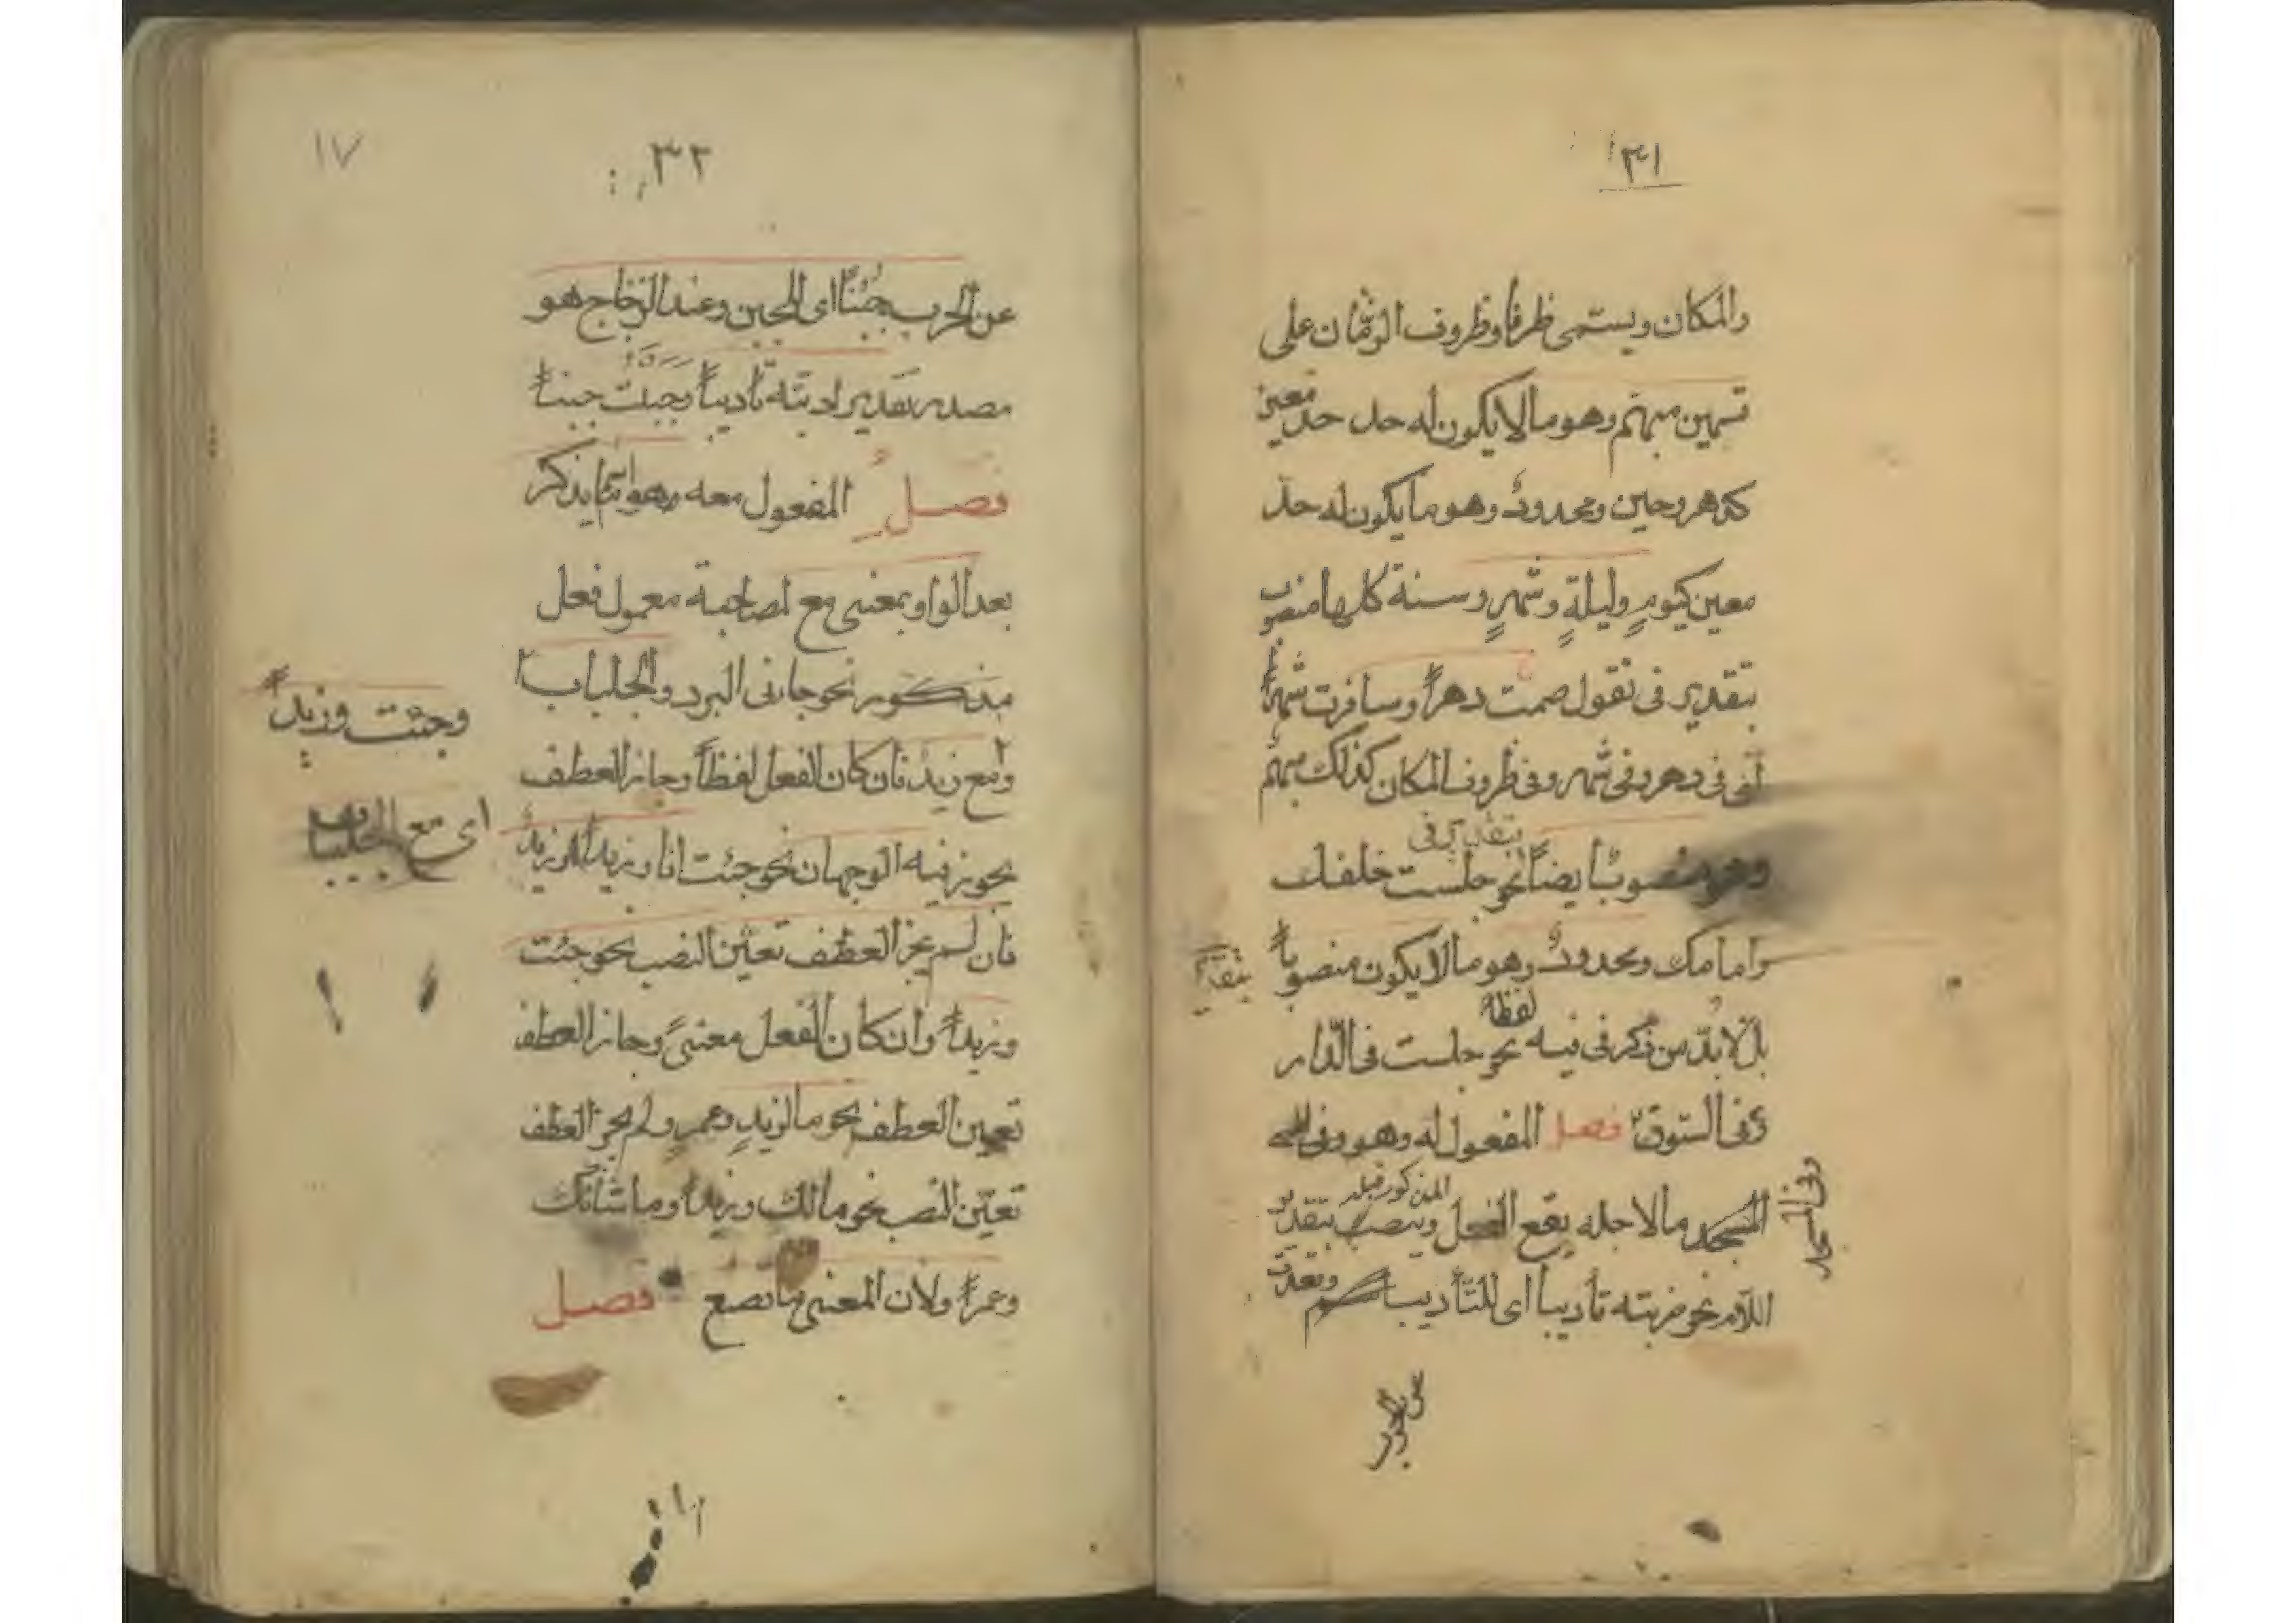 ٣١
والمكان ويسمّى ظرفا وظروف الزمان على
قسمين مبهم وهو ما لا يكون له حد حد معين
كدهر وحين ومحدودٌ وهو ما يكون له حدّ
معين كيومٍ وليلةٍ وشهرٍ وسنة كلها منصوب
بتقدير فى تقول صمت دهراً وسافرت شهراً
أى فى دهر وفى شهر وفى ظروف المكان كذلك مبهم
بتقدير فى
وهو منصوبٌ أيضاً نحو جلست خلفك
وامامك ومحدودٌ وهو ما لا يكون منصوباً
بتقدير
لفظة
بل لا بدّ من ذكر فى فيه نحو جلست فى الدّار
وفى السّوق فصل المفعول له وهو وفى
المسجد ما لاجله يقع الفعل وينصب بتقدير
المذكور قبله
وفى المسجد
اللام نحو ضربته تأديباً اى للتأديب وقعدت
عن الحرب
٣٢
١٧
عن الحرب جُبْنًا اى للجبن وعند الزجّاج هو
مصدر تقديره ادبته تأديباً وجبنت جبناً
فصلٌ المفعول معه وهو اسم يذكر
بعد الواو بمعنى مع لمصاحبة معمول فعل
مذكور نحو جاءنى البرد والجلباب
وجئت وزيداً
ومع زيد فان كان الفعل لفظاً وجاز العطف
اى مع الجلباب
يجوز فيه الوجهان نحو جئت انا وزيداً وزيدٌ
فان لم يجز العطف تعيّن النصب نحو جئت
وزيداً وان كان الفعل معنىً وجاز العطف
تعين العطف نحو ما لزيدٍ وعمرٍو ولم يجز العطف
تعيّن النصب نحو مالك وزيداً وما شانك
وعمراً ولان المعنى ما تصنع فصل